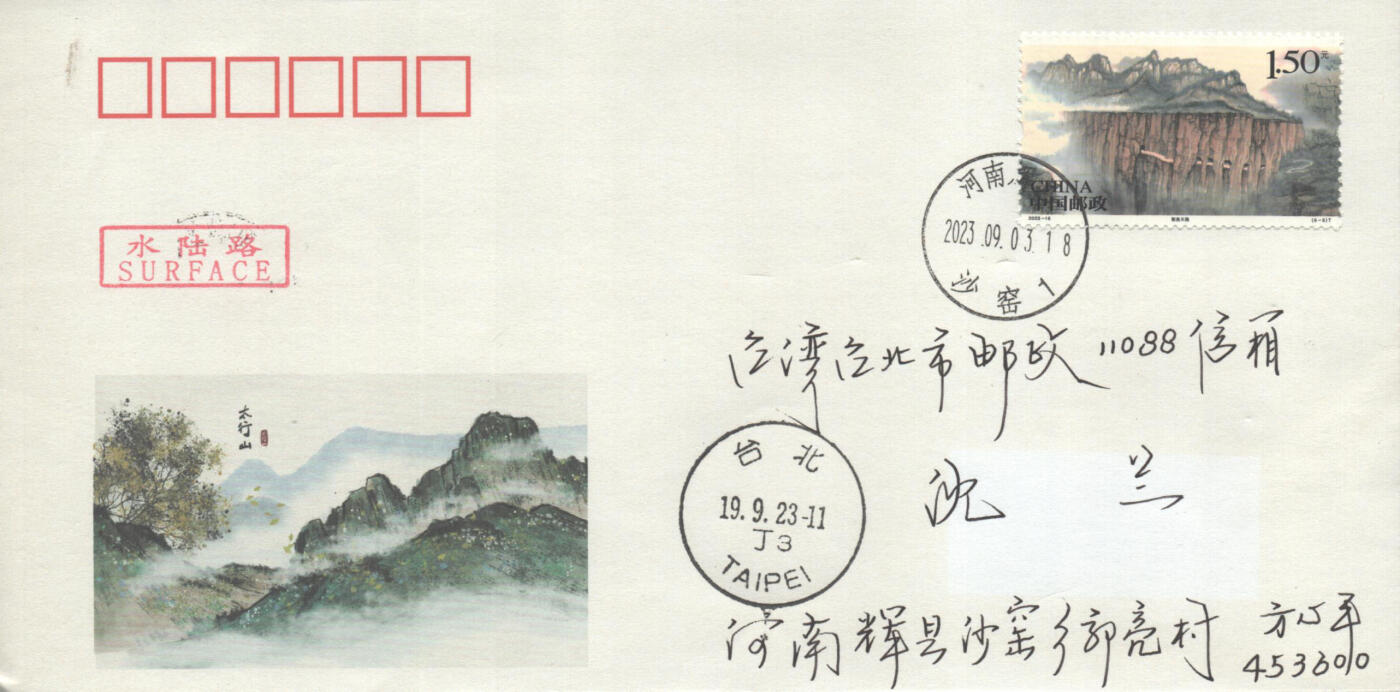 1.50元
CHINA
中国邮政
2023-16
郭亮天路
(6-6)T
河南
2023.09.03.18
沙窑1
水陆路
SURFACE
台湾台北市邮政11088信箱
太行山
沈 兰
台北
19.9.23-11
J3
TAIPEI
河南辉县沙窑乡郭亮村
453600